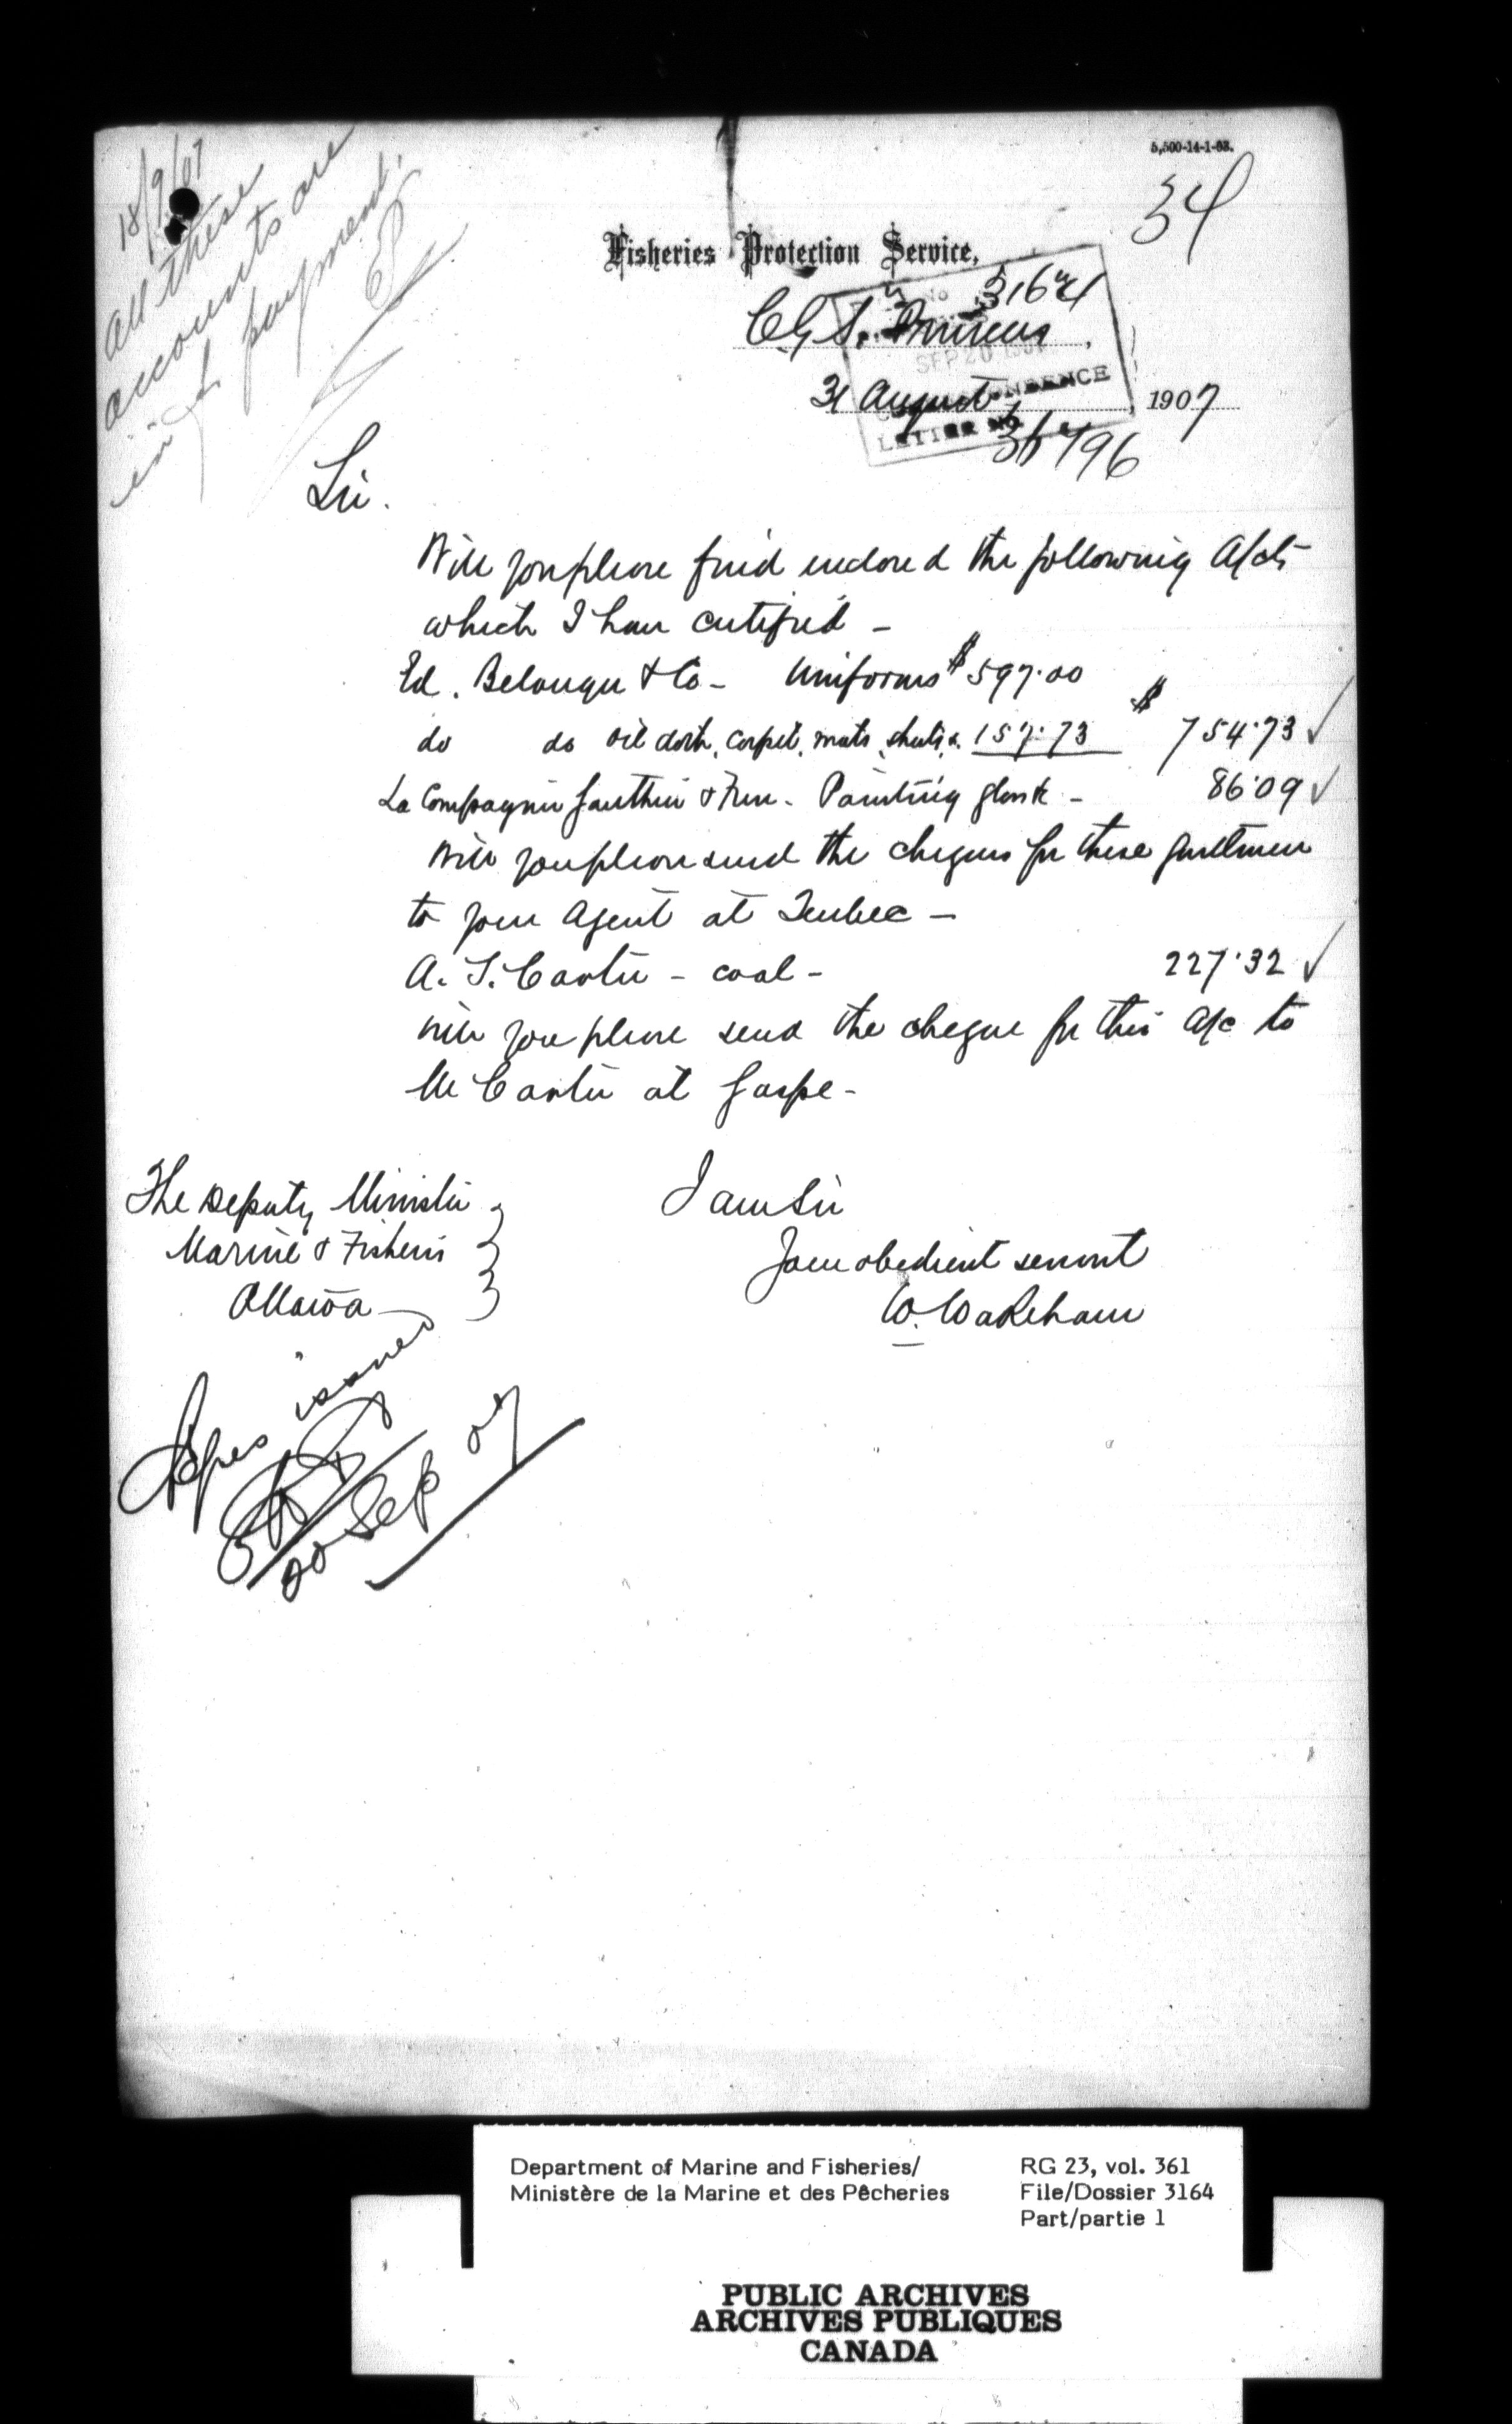 5,500-14-1-03.
34
18/9/07
All these
accounts are
in f payment.
Fisheries Protection Service,
No 3164
C.G.S. Princess
SEP 20 1907
31 August, 1907
CORRESPONDENCE
LETTER No.
Sir.
Will you please find enclosed the following A/cts
which I have certified -
Ed. Belanger & Co - Uniforms $ 597.00
do do oil cloth, carpet, mats, sheets &. 157.73 $ 754.73 ✓
La Compagnie Gauthier & Frere - Painting - 86.09 ✓
Will you please send the cheques for these gentlemen
to your Agent at Quebec -
A. T. Carter - coal - 227.32 ✓
Will you please send the cheque for this A/c to
Mr Carter at Gaspe -
The Deputy Minister
Marine & Fisheries
Ottawa
I am Sir
Your obedient servant
W. Wakeham
issued
20 Sep 07
Department of Marine and Fisheries/
Ministère de la Marine et des Pêcheries
RG 23, vol. 361
File/Dossier 3164
Part/partie 1
PUBLIC ARCHIVES
ARCHIVES PUBLIQUES
CANADA